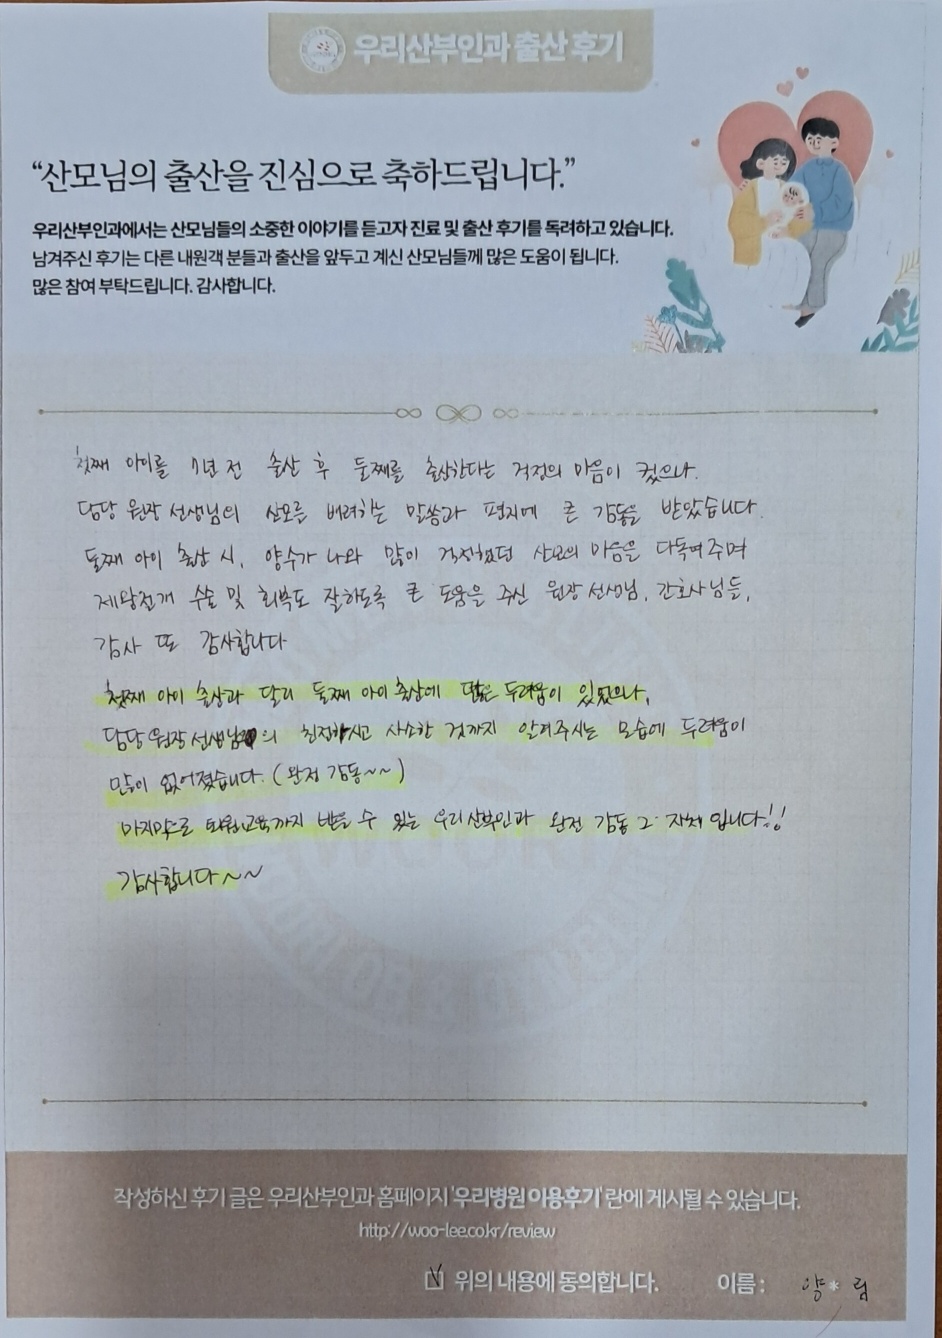 우리산부인과 출산 후기
“산모님의 출산을 진심으로 축하드립니다.”
우리산부인과에서는 산모님들의 소중한 이야기를 듣고자 진료 및 출산 후기를 독려하고 있습니다.
남겨주신 후기는 다른 내원객 분들과 출산을 앞두고 계신 산모님들께 많은 도움이 됩니다.
많은 참여 부탁드립니다. 감사합니다.
첫째 아이를 7년 전 출산 후 둘째를 출산한다는 걱정의 마음이 컸으나
담당 원장 선생님의 산모를 배려하는 말씀과 편지에 큰 감동을 받았습니다.
둘째 아이 출산 시, 양수가 나와 많이 걱정했던 산모의 마음을 다독여주며
제왕절개 수술 및 회복도 잘하도록 큰 도움을 주신 원장 선생님, 간호사님들,
감사 또 감사합니다
첫째 아이 출산과 달리 둘째 아이 출산에 두려움이 있었으나,
담당 원장 선생님의 친절하시고 사소한 것까지 알려주시는 모습에 두려움이
많이 없어졌습니다. (완전 감동~~)
마지막으로 퇴원교육까지 받을 수 있는 우리산부인과 완전 감동 그 자체 입니다!!
감사합니다~~
작성하신 후기 글은 우리산부인과 홈페이지 '우리병원 이용후기' 란에 게시될 수 있습니다.
http://woo-lee.co.kr/review
위의 내용에 동의합니다. 이름 : 양*림